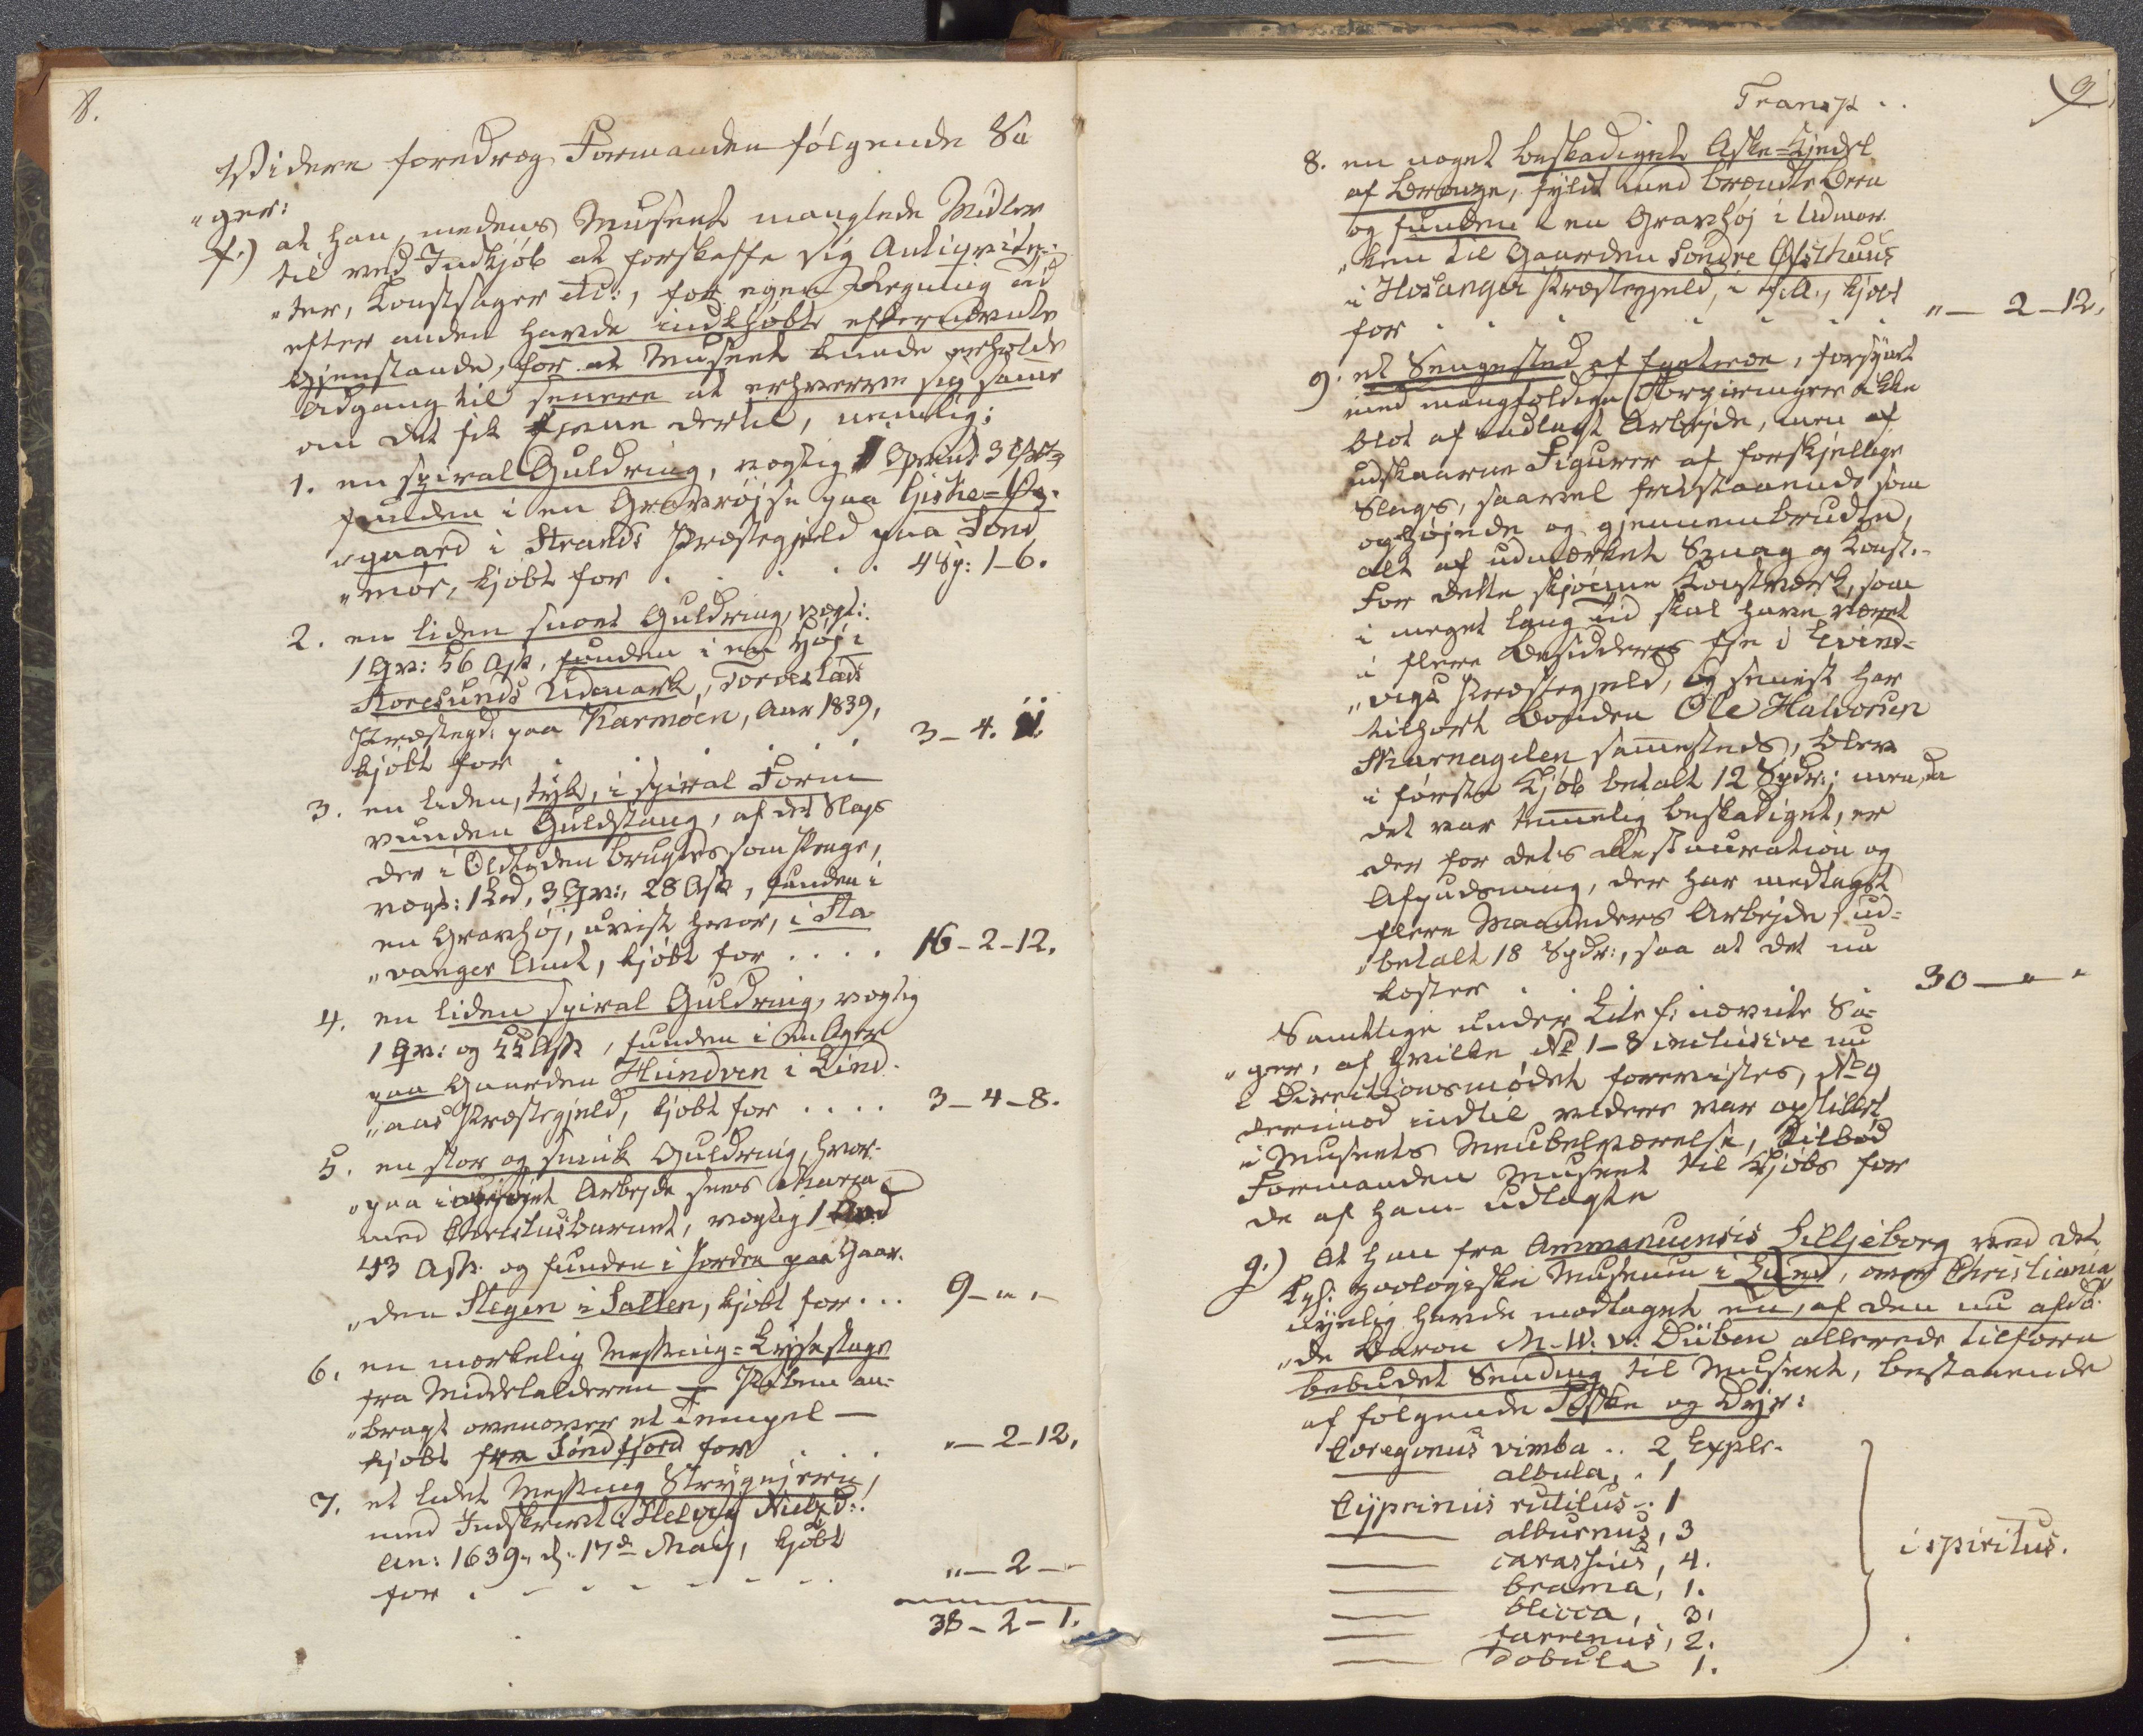 8.
Videre foredrog Formanden følgende Sa
"ger:
f.) at han, medens Museet manglede Midler
til ved Indkjøb at forskaffe sig Antiqvite-
"ter, Konstsager etc:, for egen Regning Tid
efter anden havde indkjøbt efternævnte
Gjenstande, for at Museet kunde erholde
Adgang til senere at erhverve sig samme
om det fik Evne dertil, nemlig:
1. en spiral Guldring, vegtig
funden i en Gravrøjse paa Giske=Øg.
"gaard i Strands Præstegjeld paa Sønd
"mør, kjøbt for . . . . . 4 Sp: 1-6.
2. en liden snoet Guldring, vegt:
1 Qv: 56 Ass, funden i en Høj i
Storesunds Udmark, Torvestads
Præstegd: paa Karmøen, Aar 1839,
kjøbt for . . . . . 3-4.
3. en liden, tyk, i spiral Form
vunden Guldstang, af det Slags
der i Oldtiden brugtes som Penge,
vegt: 1 Lod, 3 Qv:, 28 Ass, funden i
en Gravhøj, uvist hvor, i Sta
"vanger Amt, kjøbt for . . . . 16-2-12.
4. en liden spiral Guldring, vegtig
1 Qv: og 55 Ass, funden i en Ager
paa Gaarden Hundven i Lind-
"aas Præstegjeld, kjøbt for . . . . 3-4-8.
5. en stor og smuk Guldring, hvor-
"paa i ophøjet Arbejde sees Maria
med Christusbarnet, vegtig 1 Lod
43 Ass. og funden i Jorden paa Gaar-
"den Stegen i Salten, kjøbt for . . . 9-"-"
6. en mærkelig Messing=Lysestage
fra Middelalderen – Piben an-
"bragt ovenover et Tempel –
kjøbt fra Søndfjord for . . . "-2-12.
7. et lidet Messing Strygejern,
med Indskrivt: Helvig Nielsd:
An: 1639, d: 17de Maij, kjøbt
for . . . . . . . "-2-"
38-2-1.
9
Transp . .
8. en noget beskadiget Aske=Kjedel
af Bronze, fyldt med brændte Been
og funden i en Gravhøj i Udmar-
"ken til Gaarden Søndre Ofsthuus
i Hosanger Præstegjeld, i, kjøbt
for . . . . . . . "-2-12.
9. et Sengested af Egetræe, forsynet
med mangfoldige Forziringer ikke
blot af indlagt Arbejde, men af
udskaarne Figurer af forskjellige
Slags, saavel fritstaaende som
ophøjede og gjennembrudte,
alt af udmærket Smag og Konst.-
For dette skjønne Konstværk, som
i meget lang Tid skal have været
i flere Besidderes Eje i Evind-
"vigs Præstegjeld, og senest har
tilhørt Bonden Ole Halvorsen
Skarnagelen sammesteds, blev
i første Kjøb betalt 12 Spdr:; men da
det var temmelig beskadiget, er
der for dets Restauration og
Afpudsning, der har medtaget
flere Maaneders Arbejde, ud-
"betalt 18 Spdr:, saa at det nu
koster . . . . 30-"-"
Samtlige under Litr. f. nævnte Sa-
"ger, af hvilke No 1-8 inclusive nu
i Directionsmødet forevistes, No 9
derimod indtil videre var opstillet
i Museets Meubelværelse, tilbød
Formanden Museet til Kjøbs for
de af ham udlagte
g.) At han fra Ammanuensis Lilljeborg ved det
Kgl: zoologiske Museum i Lund, over Christiania
nylig havde modtaget en, af den nu afdø-
"de Baron M. W. v: Düben allerede tilforn
bebudet Sending til Museet, bestaaende
af følgende Fiske og Dyr:
Coregonus vimba . . 2 Explr.
—— albula, . 1
Cyprinus rutilus . . 1
—— alburnus, 3
—— carassius, 4.
—— brama, 1.
—— blicca, 3.
—— farrenus, 2.
—— dobula 1.
i spiritus.